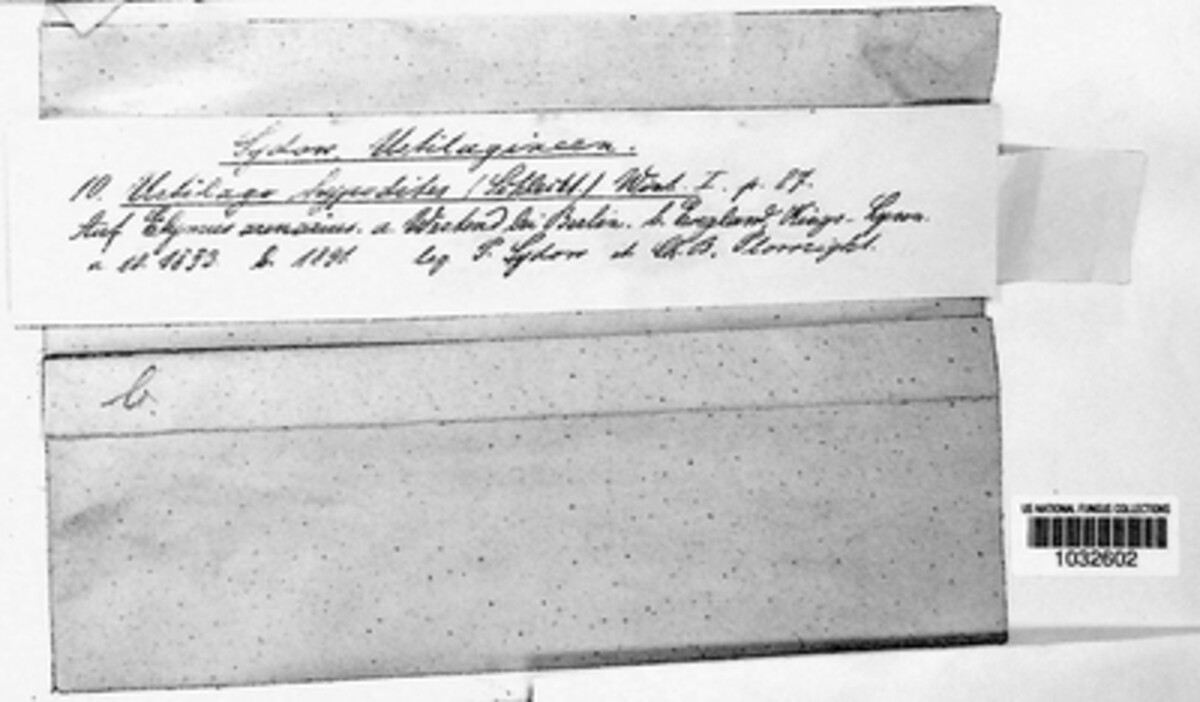 Sydow, Ustilagineen.
10. Ustilago hypodites (Schlecht.) Wint. I. p. 87.
Auf Elymus arenarius. a. bei Berlin. b. England Kings-Lynn.
a. 1893. b. 1891 leg. P. Sydow et Ch. B. Plowright.
b.
US NATIONAL FUNGUS COLLECTIONS
1032602